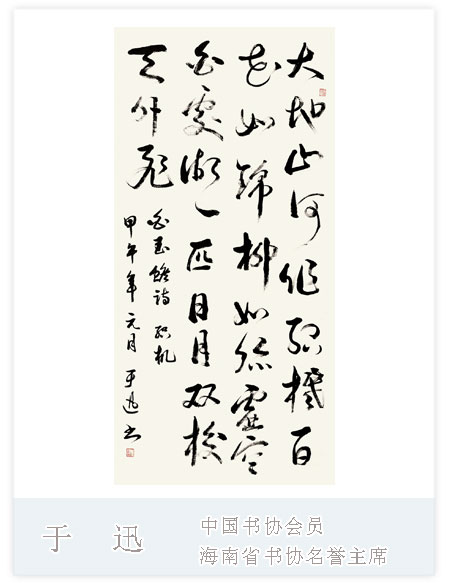 大地山河作织機百
花如錦柳如絲虛空
白處做一匹日月双梭
天外飛
白玉蟾诗 织机
甲午年元月 于迅书
于 迅
中国书协会员
海南省书协名誉主席